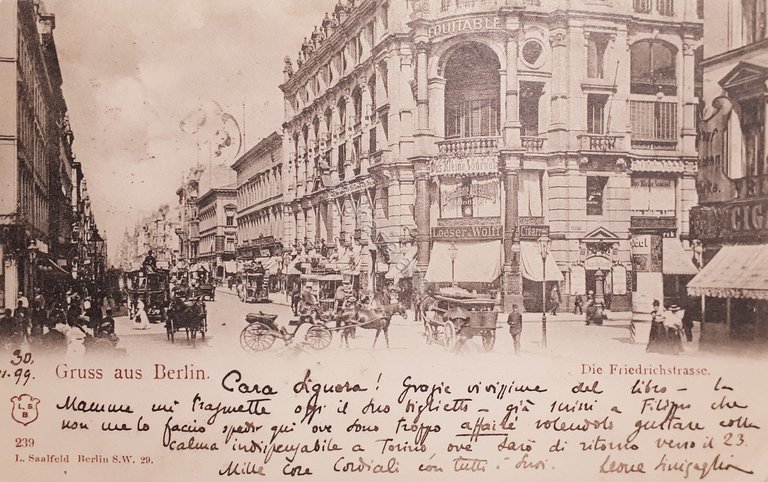 EQUITABLE
Das kleine
Loeser & Wolff
CIGA
30.
11.99.
Gruss aus Berlin.
Die Friedrichstrasse.
Cara Signora! Grazie vivissime del libro – la
Mamma mi trasmette oggi il Suo biglietto – già scrissi a Filippo che
non me lo faccia spedir qui ove sono troppo affairé volendolo gustare colla
calma indispensabile a Torino, ove sarò di ritorno verso il 23.
Mille cose cordiali con tutti i Suoi. Leone Sinigaglia
L. S. B
239
L. Saalfeld Berlin S.W. 29.